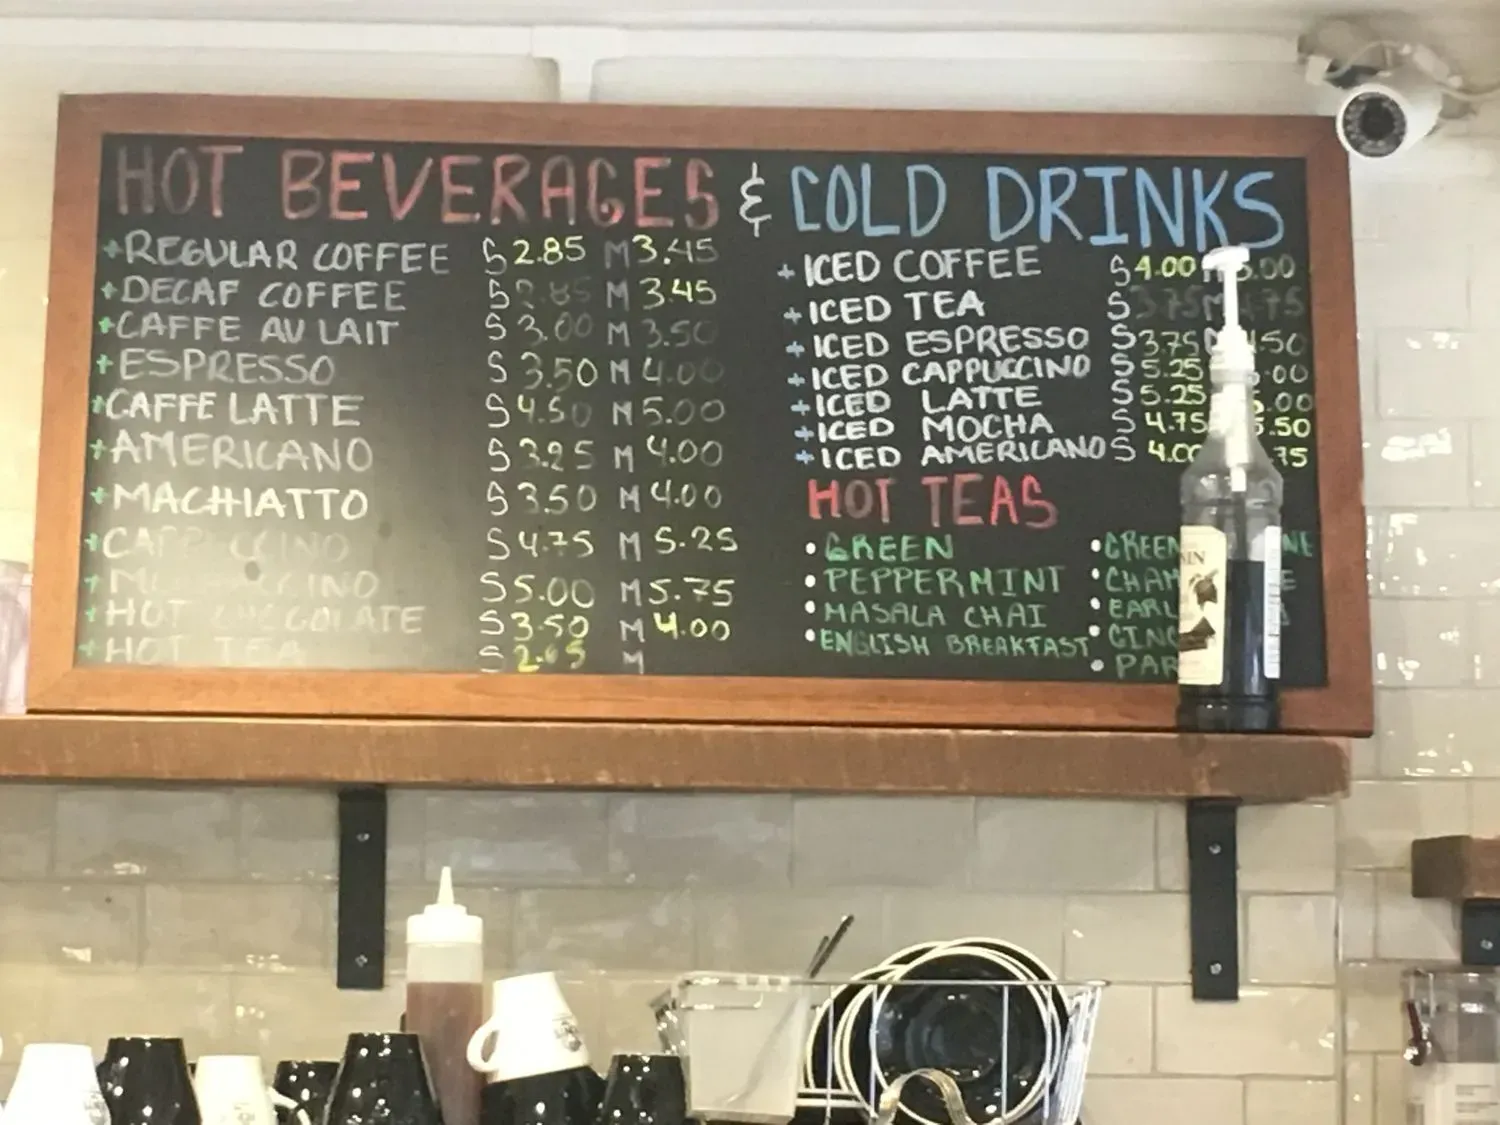 HOT BEVERAGES & COLD DRINKS
+REGULAR COFFEE S 2.85 M 3.45
+DECAF COFFEE S 2.85 M 3.45
+CAFFE AU LAIT S 3.00 M 3.50
+ESPRESSO S 3.50 M 4.00
+CAFFE LATTE S 4.50 M 5.00
+AMERICANO S 3.25 M 4.00
+MACHIATTO S 3.50 M 4.00
+CAPPUCCINO S 4.75 M 5.25
+ S 5.00 M 5.75
+HOT CHOCOLATE S 3.50 M 4.00
+HOT TEA S M
+ICED COFFEE S 4.00
+ICED TEA S 3.75 M
+ICED ESPRESSO S 3.75
+ICED CAPPUCCINO S 5.25
+ICED LATTE S 5.25
+ICED MOCHA S 4.75
+ICED AMERICANO S 4.00
HOT TEAS
•GREEN
•PEPPERMINT
•MASALA CHAI
•ENGLISH BREAKFAST
•GREEN
•CHAM
•EARL